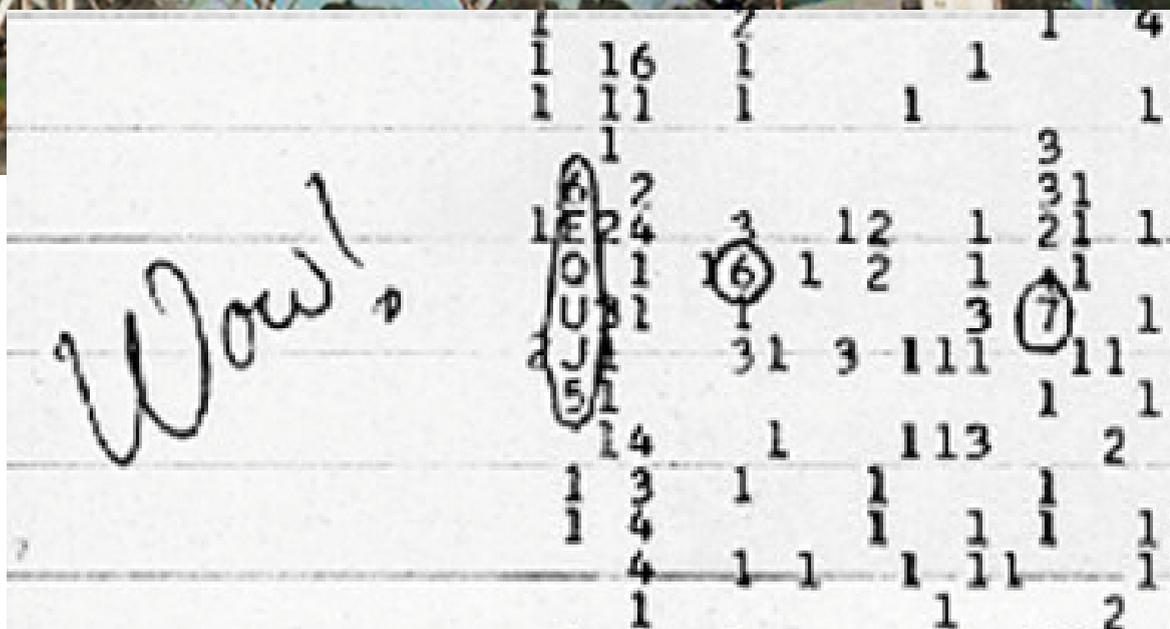 1 2 1 4
1 16 1 1
1 11 1 1 1
1 3
6 2 31
1E24 3 12 1 21 1
Q 1 16 1 2 1 1
Wow!
U31 1 3 7 1
2J 31 3 111 11
51 1 1
14 1 113 2
1 3 1 1 1
1 4 1 1 1 1
4 1 1 1 11 1
1 1 2